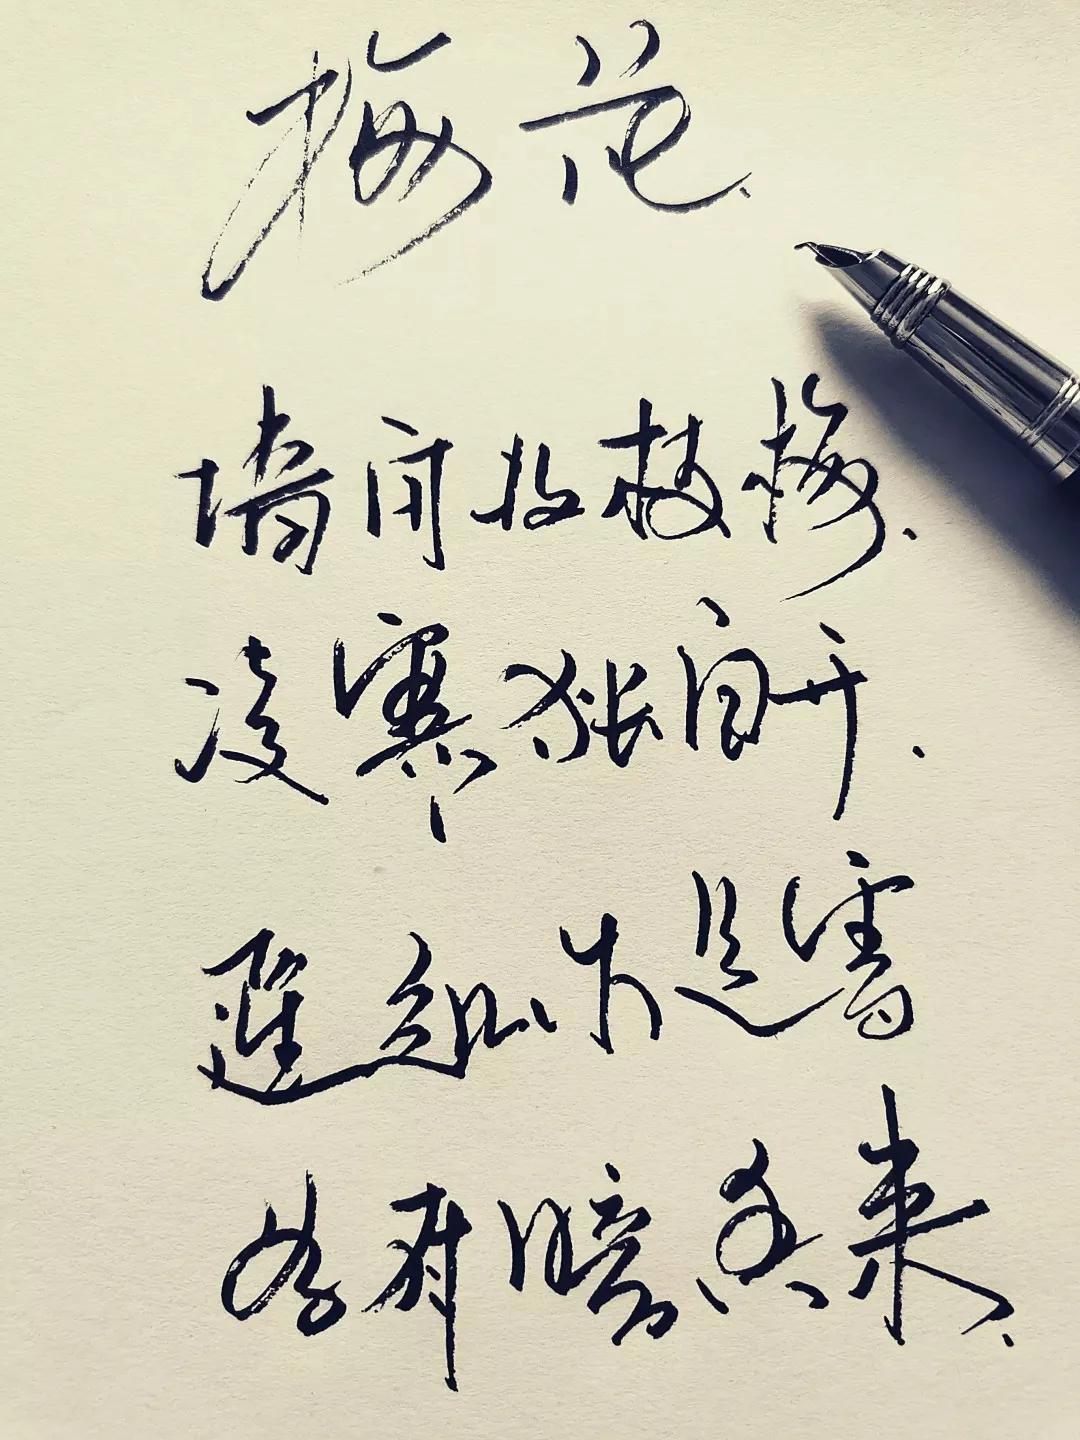 梅花.
墙角数枝梅.
凌寒独自开.
遥知不是雪
为有暗香来.